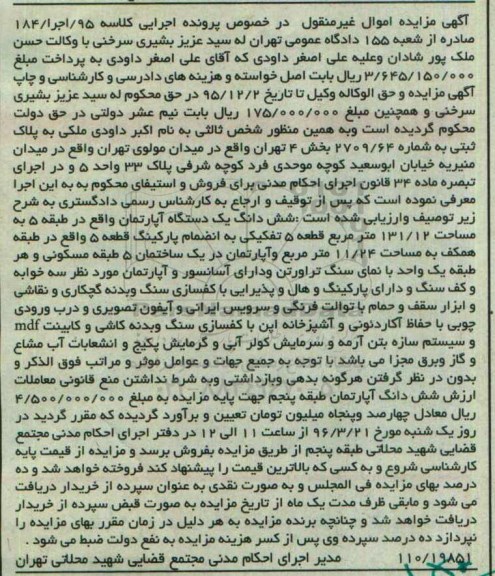 آگهی مزایده اموال غیرمنقول در خصوص پرونده اجرایی کلاسه ۹۵/اجرا/۱۸۴
صادره از شعبه ۱۵۵ دادگاه عمومی تهران له سید عزیز بشیری سرخنی با وکالت حسن
ملک پور شادان وعلیه علی اصغر داودی که آقای علی اصغر داودی به پرداخت مبلغ
۳/۶۴۵/۱۵۰/۰۰۰ ریال بابت اصل خواسته و هزینه های دادرسی و کارشناسی و چاپ
آگهی مزایده و حق الوکاله وکیل تا تاریخ ۹۵/۱۲/۲ در حق محکوم له سید عزیز بشیری
سرخنی و همچنین مبلغ ۱۷۵/۰۰۰/۰۰۰ ریال بابت نیم عشر دولتی در حق دولت
محکوم گردیده است وبه همین منظور شخص ثالثی به نام اکبر داودی ملکی به پلاک
ثبتی به شماره ۲۷۰۹/۶۴ بخش ۴ تهران واقع در میدان مولوی تهران واقع در میدان
منیریه خیابان ابوسعید کوچه موحدی فرد کوچه شرفی پلاک ۳۳ واحد ۵ و در اجرای
تبصره ماده ۳۴ قانون اجرای احکام مدنی برای فروش و استیفای محکوم به به این اجرا
معرفی نموده است که پس از توقیف و ارجاع به کارشناس رسمی دادگستری به شرح
زیر توصیف وارزیابی شده است :شش دانگ یک دستگاه آپارتمان واقع در طبقه ۵ به
مساحت ۱۳۱/۱۲ متر مربع قطعه ۵ تفکیکی به انضمام پارکینگ قطعه ۵ واقع در طبقه
همکف به مساحت ۱۱/۲۴ متر مربع وآپارتمان در یک ساختمان ۵ طبقه مسکونی و هر
طبقه یک واحد با نمای سنگ تراورتن ودارای آسانسور و آپارتمان مورد نظر سه خوابه
و کف سنگ و دارای پارکینگ و هال و پذیرایی با کفسازی سنگ وبدنه گچکاری و نقاشی
و ابزار سقف و حمام با توالت فرنگی و سرویس ایرانی و آیفون تصویری و درب ورودی
چوبی با حفاظ آکاردئونی و آشپزخانه اپن با کفسازی سنگ وبدنه کاشی و کابینت mdf
و سیستم سازه بتن آرمه و سرمایش کولر آبی و گرمایش پکیج و انشعابات آب مشاع
و گاز وبرق مجزا می باشد با توجه به جمیع جهات و عوامل موثر و مراتب فوق الذکر و
بدون در نظر گرفتن هرگونه بدهی وبازداشتی وبه شرط نداشتن منع قانونی معاملات
ارزش شش دانگ آپارتمان طبقه پنجم جهت پایه مزایده به مبلغ ۴/۵۰۰/۰۰۰/۰۰۰
ریال معادل چهارصد وپنجاه میلیون تومان تعیین و برآورد گردیده که مقرر گردید در
روز یک شنبه مورخ ۹۶/۳/۲۱ از ساعت ۱۱ الی ۱۲ در دفتر اجرای احکام مدنی مجتمع
قضایی شهید محلاتی طبقه پنجم از طریق مزایده بفروش برسد و مزایده از قیمت پایه
کارشناسی شروع و به کسی که بالاترین قیمت را پیشنهاد کند فروخته خواهد شد و ده
درصد بهای مزایده فی المجلس و به صورت نقدی به عنوان سپرده از خریدار دریافت
می شود و مابقی ظرف مدت یک ماه از تاریخ مزایده به صورت قبض سپرده از خریدار
دریافت خواهد شد و چنانچه برنده مزایده به هر دلیل در زمان مقرر بهای مزایده را
نپردازد ده درصد سپرده وی پس از کسر هزینه مزایده به نفع دولت ضبط می شود .
۱۱۰/۱۹۸۵۱ مدیر اجرای احکام مدنی مجتمع قضایی شهید محلاتی تهران